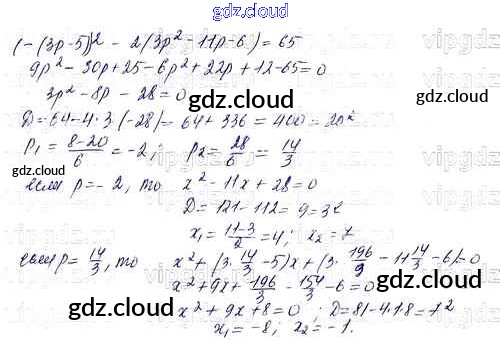 gdz.cloud
(-(3p-5))² - 2(3p²-11p-6) = 65
9p² - 30p + 25 - 6p² + 22p + 12 - 65 = 0
3p² - 8p - 28 = 0
gdz.cloud
D = 64 - 4·3·(-28) = 64 + 336 = 400 = 20²
p₁ = (8-20)/6 = -2; p₂ = 28/6 = 14/3
если p = -2, то x² - 11x + 28 = 0
gdz.cloud
D = 121 - 112 = 9 = 3²
x₁ = (11-3)/2 = 4; x₂ = 7
если p = 14/3, то x² + (3·14/3 - 5)x + (3·196/9 - 11·14/3 - 6) = 0
x² + 9x + 196/3 - 154/3 - 6 = 0
gdz.cloud
gdz.cloud
x² + 9x + 8 = 0; D = 81 - 4·1·8 = 7²
x₁ = -8; x₂ = -1.